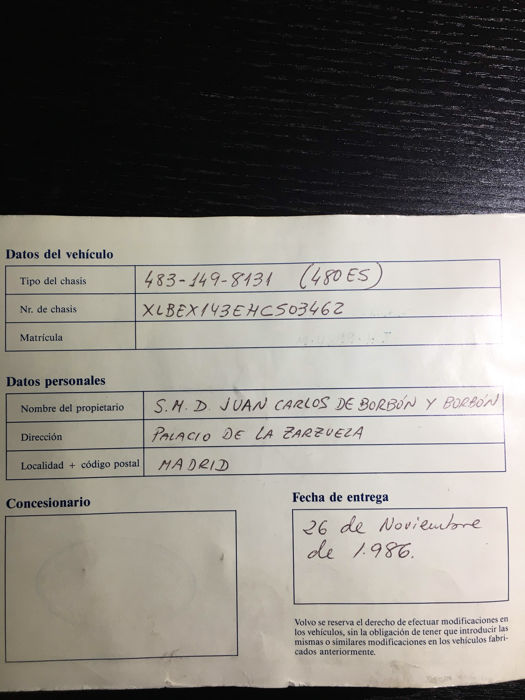 Datos del vehículo
Tipo del chasis 483-149-8131 (480ES)
Nr. de chasis XLBEX143EHC503462
Matrícula
Datos personales
Nombre del propietario S.M.D. JUAN CARLOS DE BORBÓN Y BORBÓN
Dirección PALACIO DE LA ZARZUELA
Localidad + código postal MADRID
Concesionario
Fecha de entrega
26 de Noviembre
de 1.986.
Volvo se reserva el derecho de efectuar modificaciones en
los vehículos, sin la obligación de tener que introducir las
mismas o similares modificaciones en los vehículos fabri-
cados anteriormente.